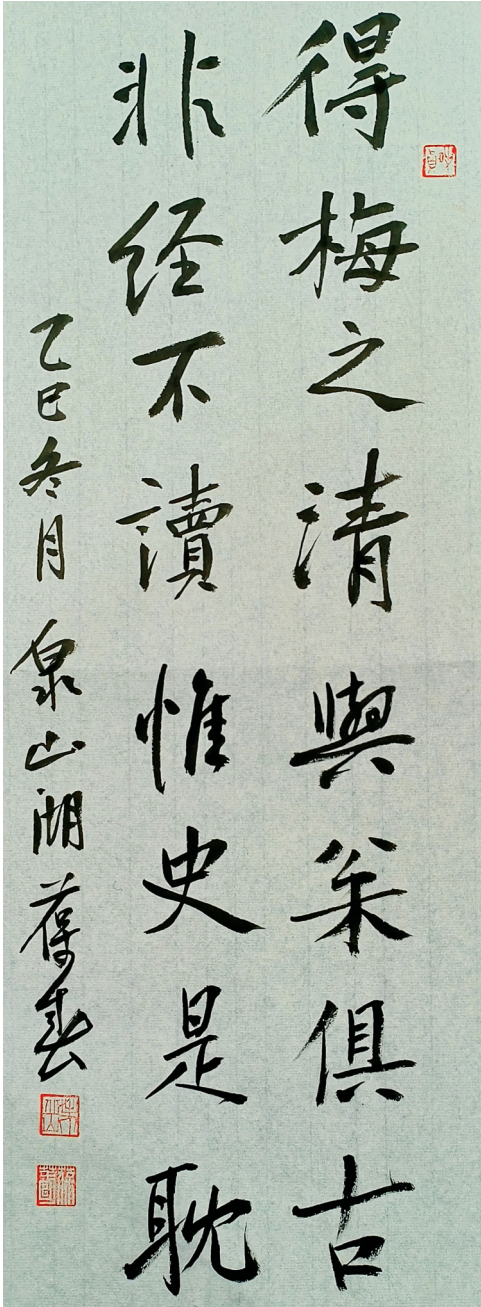 得梅之清與枀俱古
非经不讀惟史是耽
乙巳冬月 泉山湖 葆